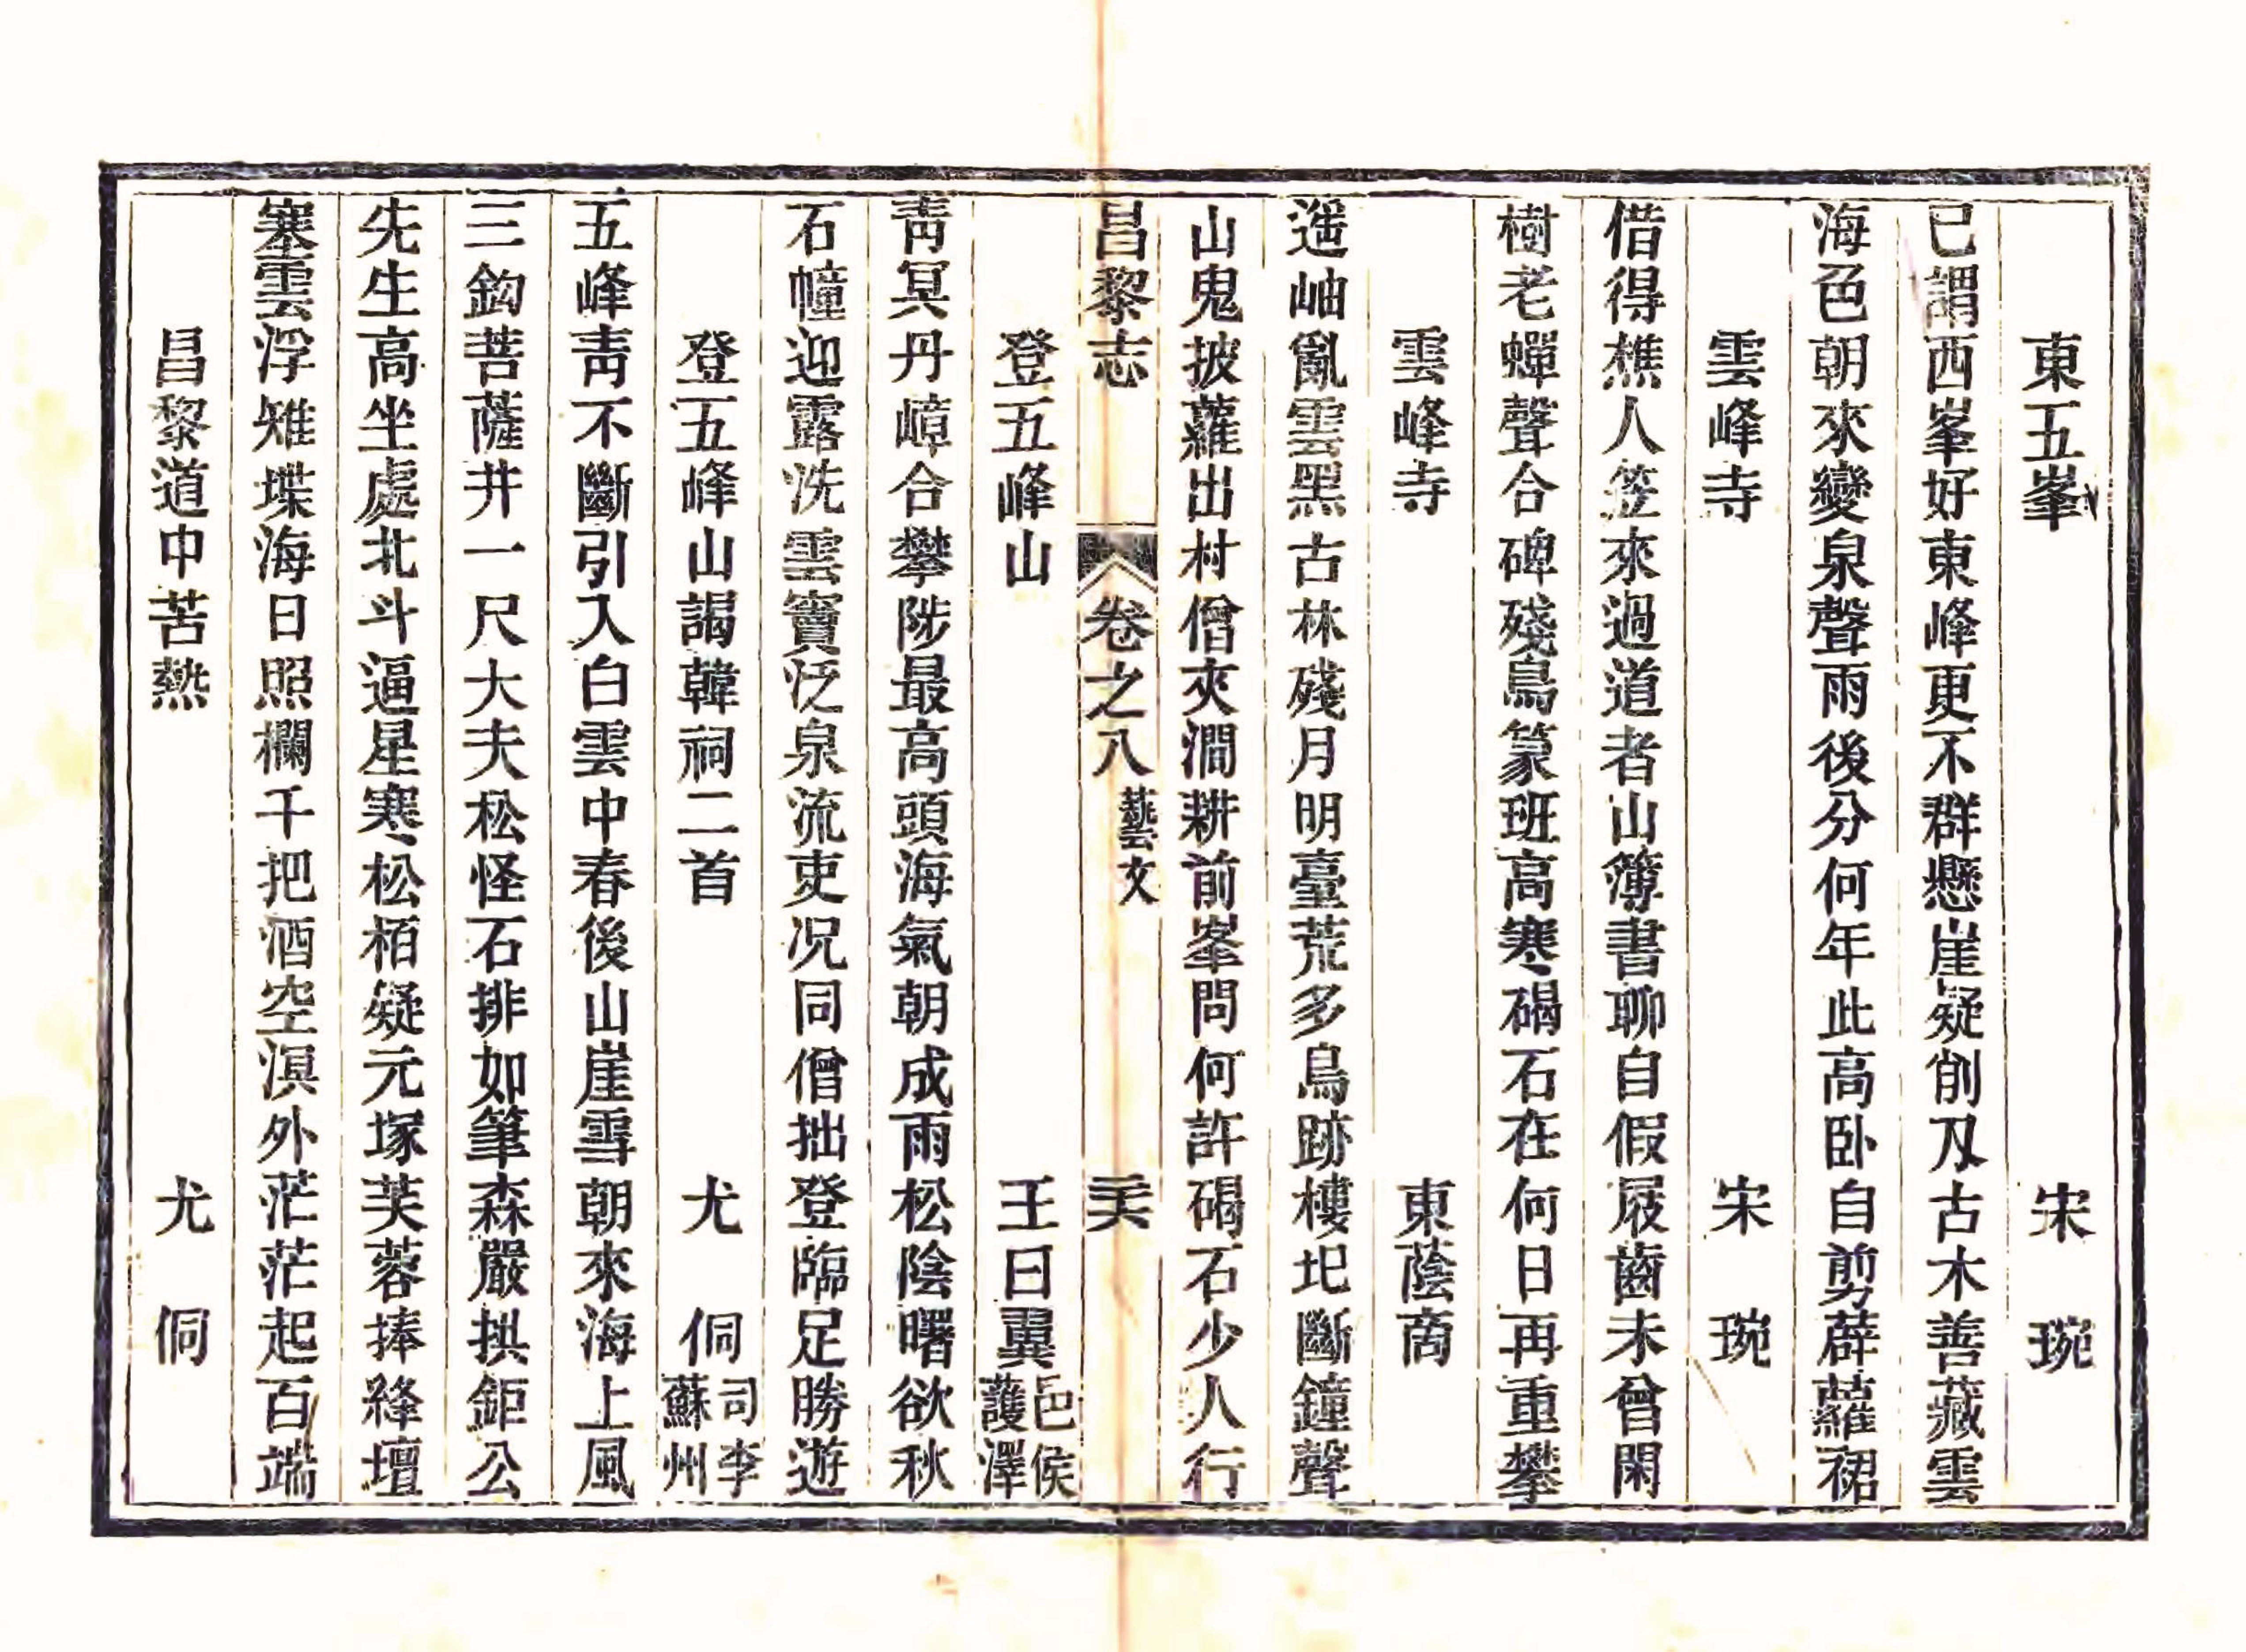 東五峯　宋琬
已謂西峯好東峰更不群懸崖疑削及古木善藏雲
海色朝來變泉聲雨後分何年此高卧自剪薜蘿裙
雲峰寺　宋琬
借得樵人笠來過道者山簿書聊自假屐齒未曾閑
樹老蟬聲合碑殘鳥篆班高寒碣石在何日再重攀
雲峰寺　東蔭商
遥岫亂雲黑古林殘月明臺荒多鳥跡樓圯斷鐘聲
山鬼披蘿出村僧夾澗耕前峯問何許碣石少人行
昌黎志　卷之八　藝文　芺
登五峰山　王曰翼　邑侯護澤
靑冥丹嶂合攀陟最高頭海氣朝成雨松陰曙欲秋
石幢迎露洗雲竇泛泉流吏况同僧拙登臨足勝遊
登五峰山謁韓祠二首　尤侗　司李蘇州
五峰靑不斷引入白雲中春後山崖雪朝來海上風
三鈎菩薩井一尺大夫松怪石排如筆森嚴拱鉅公
先生高坐處北斗逼星寒松栢疑元塚芙蓉捧絳壇
塞雲浮雉堞海日照欄干把酒空溟外茫茫起百端
昌黎道中苦熱　尤侗